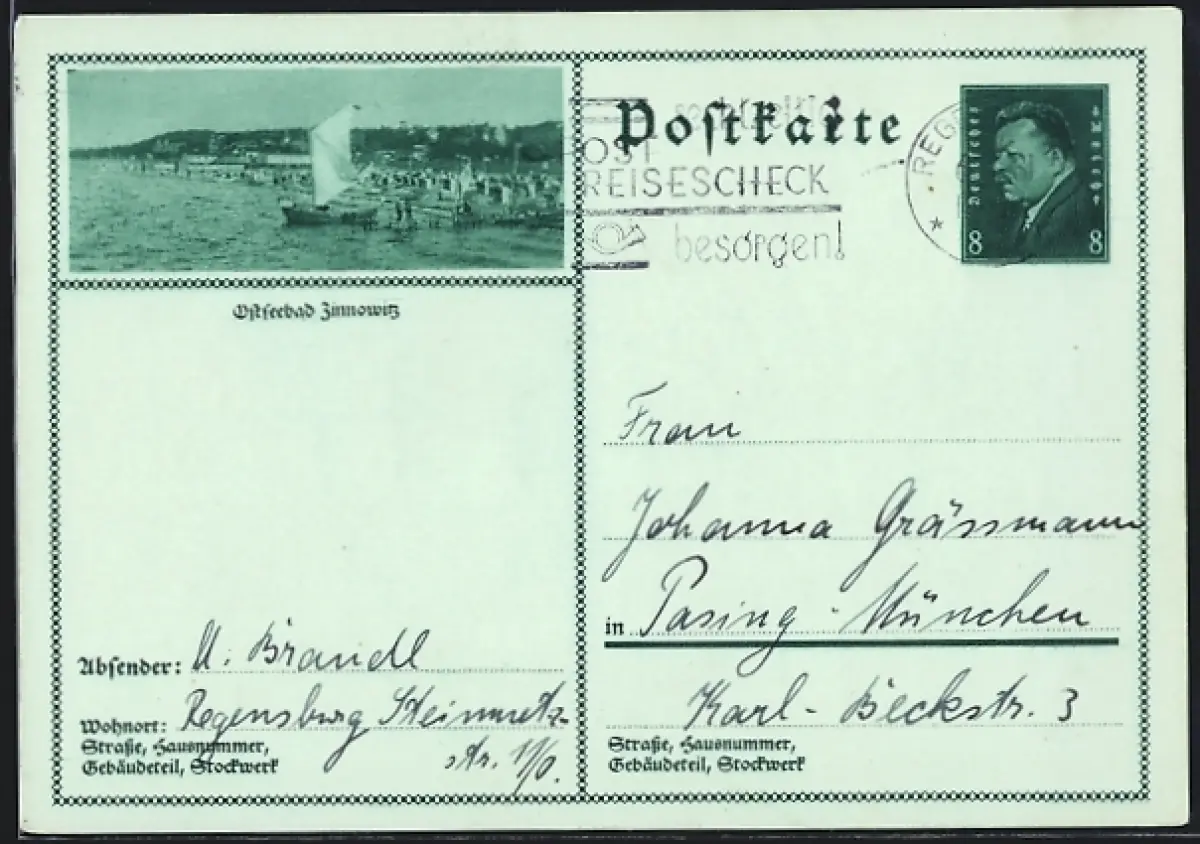 Ostseebad Zinnowitz
Absender: M. Brandl
Wohnort: Regensburg Steinmetz-
Straße, Hausnummer,
Gebäudeteil, Stockwerk
str. 11/0.
Postkarte
rechtzeitig
POST
REISESCHECK
besorgen!
REG
Deutsches Reich
8 8
Frau
Johanna Grässmann
in Pasing - München
Karl - Beckstr. 3
Straße, Hausnummer,
Gebäudeteil, Stockwerk